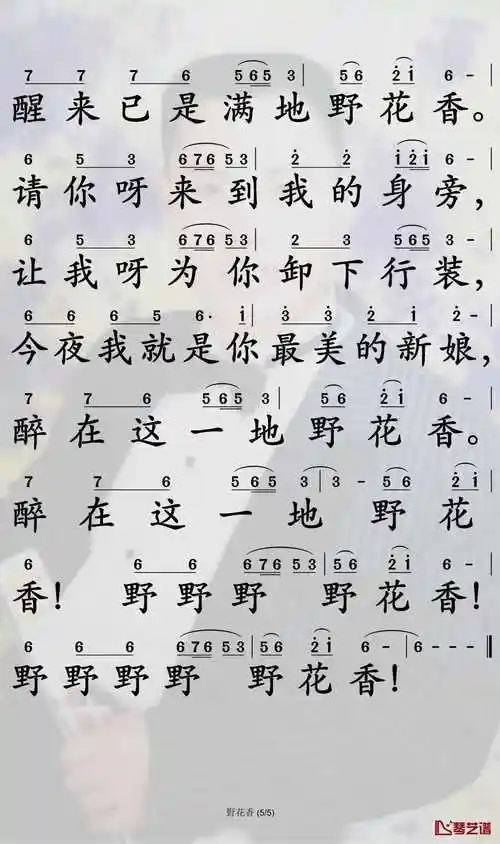 7 7 7 6 5 6 5 3 | 5 6 2 1 6 - |
醒来已是满地野花香。
6 5 3 6 7 6 5 3 | 2 2 1 2 1 6 - |
请你呀来到我的身旁，
6 5 3 6 7 6 5 3 | 2 3 5 6 5 3 - |
让我呀为你卸下行装，
6 6 6 5 6· 1 | 3 3 2 1 2 - |
今夜我就是你最美的新娘，
7 7 6 5 6 5 3 | 5 6 2 1 6 - |
醉在这一地野花香。
7 7 6 5 6 5 3 | 3 - 5 6 2 1 |
醉在这一地野花
6 6 6 6 7 6 5 3 | 5 6 2 1 6 - |
香！ 野野野 野花香！
6 6 6 6 7 6 5 3 | 5 6 2 1 6 - | 6 - - - ‖
野野野野 野花香！
野花香 (5/5)
琴艺谱